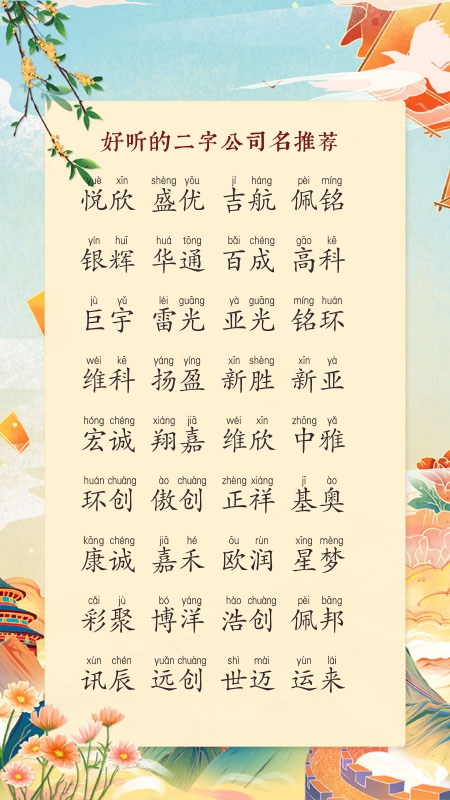 好听的二字公司名推荐
yuè xīn shèng yōu jí háng pèi míng
悦欣 盛优 吉航 佩铭
yín huī huá tōng bǎi chéng gāo kē
银辉 华通 百成 高科
jù yǔ léi guāng yà guāng míng huán
巨宇 雷光 亚光 铭环
wéi kē yáng yíng xīn shèng xīn yà
维科 扬盈 新胜 新亚
hóng chéng xiáng jiā wéi xīn zhōng yǎ
宏诚 翔嘉 维欣 中雅
huán chuàng ào chuàng zhèng xiáng jī ào
环创 傲创 正祥 基奥
kāng chéng jiā hé ōu rùn xīng mèng
康诚 嘉禾 欧润 星梦
cǎi jù bó yáng hào chuàng pèi bāng
彩聚 博洋 浩创 佩邦
xùn chén yuǎn chuàng shì mài yùn lái
讯辰 远创 世迈 运来